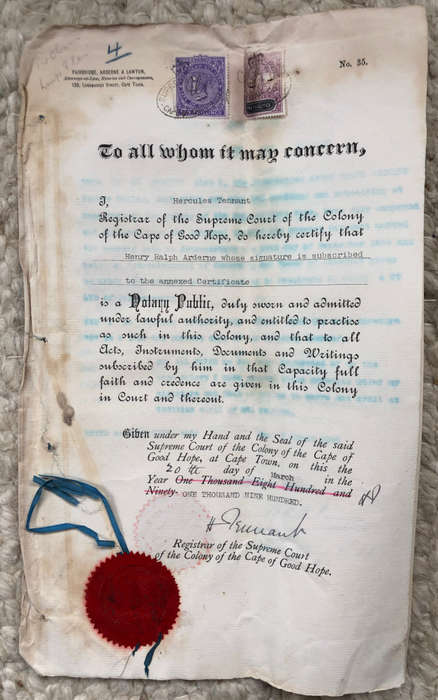 4
FAIRBRIDGE, ARDERNE & LAWTON,
Attorneys-at-Law, Notaries and Conveyancers,
Cape Town.
No. 35.
To all whom it may concern,
I, Hercules Tennant
Registrar of the Supreme Court of the Colony
of the Cape of Good Hope, do hereby certify that
Henry Ralph Arderne whose signature is subscribed
to the annexed Certificate
is a Notary Public, duly sworn and admitted
under lawful authority, and entitled to practise
as such in this Colony, and that to all
Acts, Instruments, Documents and Writings
subscribed by him in that Capacity full
faith and credence are given in this Colony
in Court and thereout.
Given under my Hand and the Seal of the said
Supreme Court of the Colony of the Cape of
Good Hope, at Cape Town, on this the
20th day of March in the
Year One Thousand Eight Hundred and
Ninety- ONE THOUSAND NINE HUNDRED.
H Tennant
Registrar of the Supreme Court
of the Colony of the Cape of Good Hope.